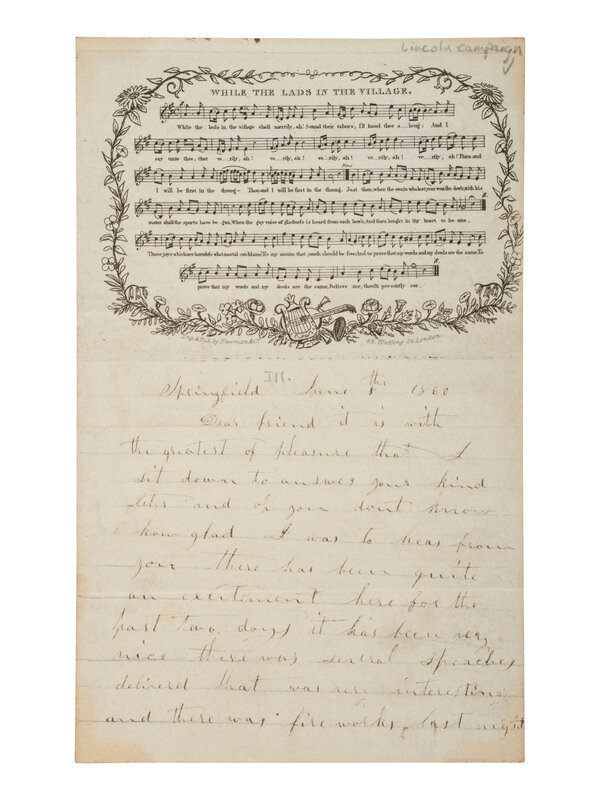 Lincoln campaign
WHILE, THE LADS IN THE VILLAGE.
While the lads in the village shall merrily, ah! Sound their tabors, I'll hand thee along; And I
say unto thee, that ve...rily, ah! ve...rily, ah! ve...rily, ah! ve...rily, ah! Thou and
Fine
I will be first in the throng. Thou and I will be first in the throng. Just then, when the swain who last year won the dow'r, with his
mates shall the sports have be...gun, When the gay voice of gladness is heard from each bow'r, And thou longst in thy heart to be one.
Those joys which are harmless what mortal can blame, It's my maxim that youth should be free, And to prove that my words and my deeds are the same, To
prove that my words and my deeds are the same, Believe me, thou'lt presently see.
Eng. & Pub. by Newman & Co. 48, Watling St. London
Ill.
Springfield June 8 the 1860
Dear friend it is with
the greatest of pleasure that I
sit down to answer your kind
letter and you dont know
how glad I was to hear from
you there has been quite
an excitement here for the
past two days it has been very
nice there was several speaches
deliverd that was very interesting
and there was fire works last night